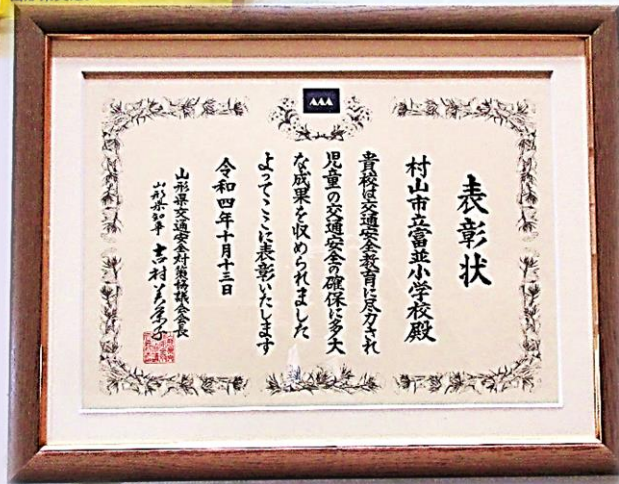 表彰状
村山市立富並小学校殿
貴校は交通安全教育に尽力され
児童の交通安全の確保に多大
な成果を収められました
よってここに表彰いたします
令和四年十月十三日
山形県交通安全対策協議会会長
山形県知事 吉村美栄子